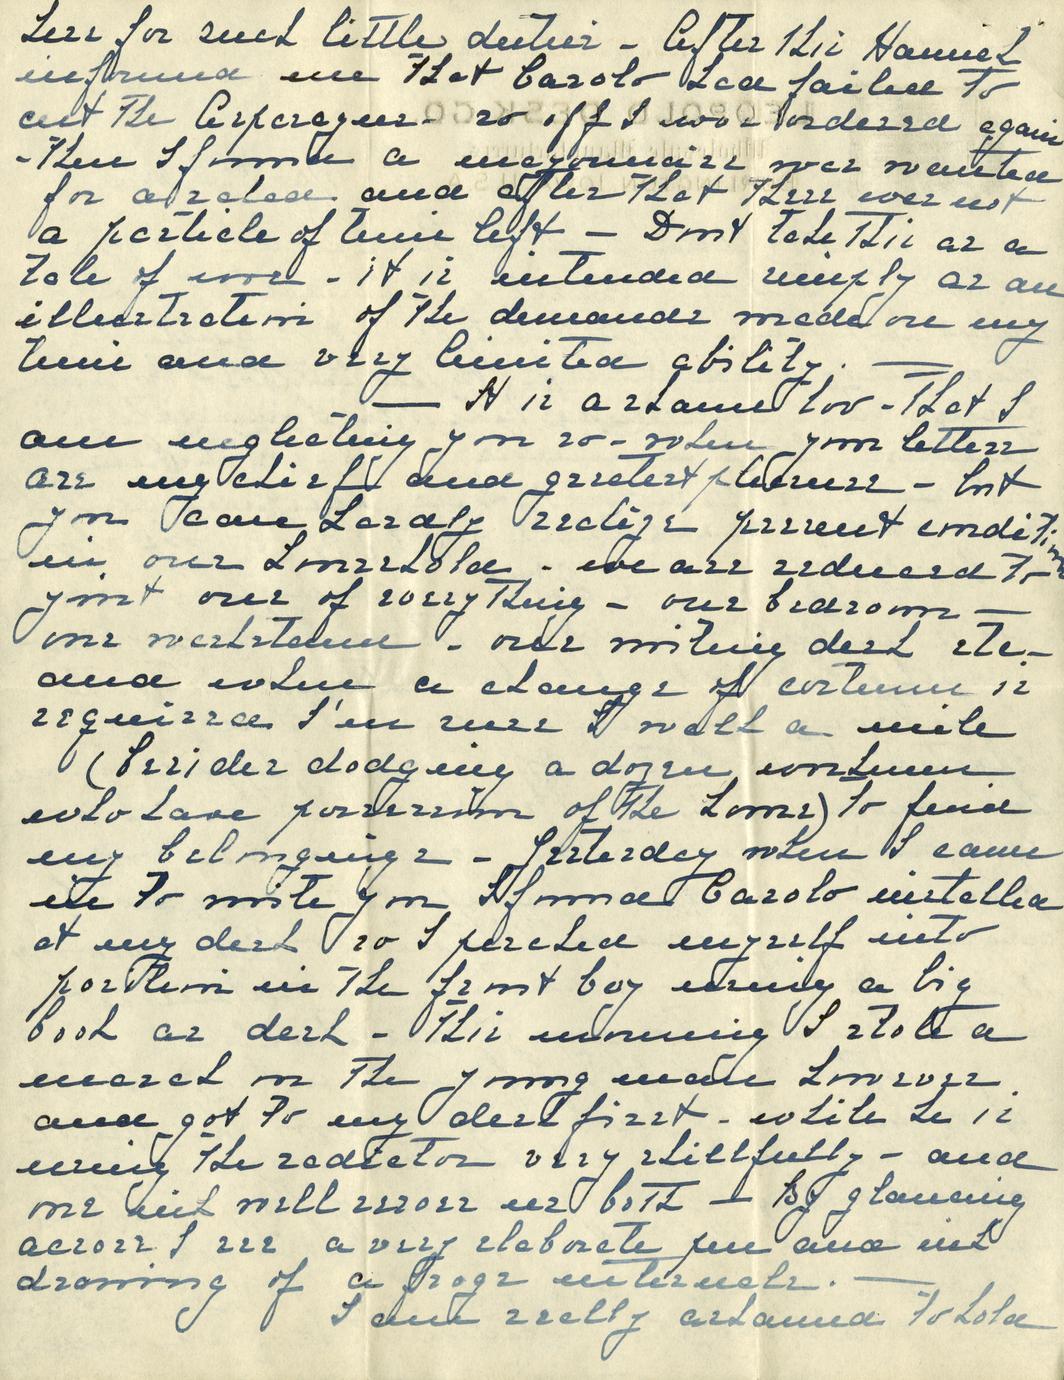 less for such little duties - After this Hannah
informed me that Carolo had failed to
cut the Asparagus - so off I was ordered again
- Then I found a mayonnaise was wanted
for a salad and after that there was not
a particle of time left - Don't take this as a
tale of woe - it is intended simply as an
illustration of the demands made on my
time and very limited ability. —
— It is a shame too - that I
am neglecting you so - when your letters
are my chief and greatest pleasure - but
you can hardly realize present condition
in our household - we are reduced to
just one of everything - one bedroom -
one washstand - one writing desk etc -
and when a change of costume is
required I'm sure I walk a mile
(besides dodging a dozen workmen
who have possession of the house) to find
my belongings - Yesterday when I came
in to write you I found Carolo installed
at my desk so I perched myself into
position in the front bay using a big
book as desk - This morning I stole a
march on the young man however
and got to my desk first - while he is
using the radiator very skillfully - and
one ink well serves us both - By glancing
across I see a very elaborate pen and ink
drawing of a frogs internals. —
I am really ashamed to hold
LEOPOLD DESK CO.